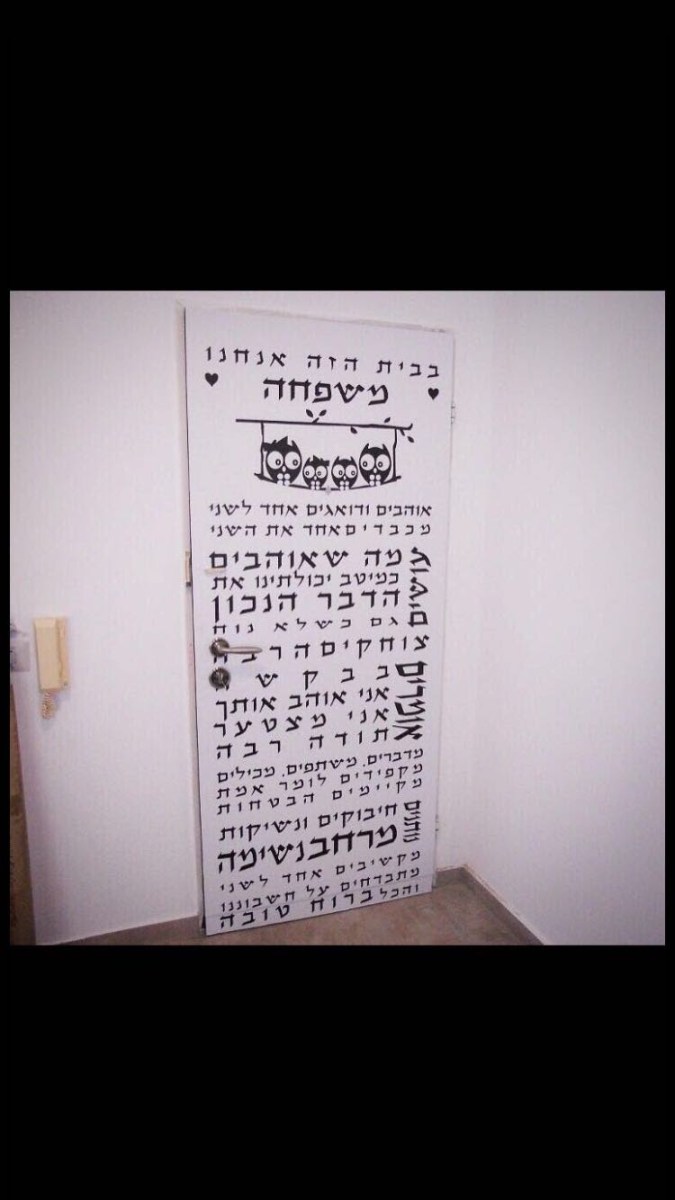 בבית הזה אנחנו
משפחה
אוהבים ודואגים אחד לשני
מכבדים אחד את השני
עושים
מה שאוהבים
כמיטב יכולתינו את
הדבר הנכון
גם כשלא נוח
צוחקים הרבה
אומרים
בבקשה
אני אוהב אותך
אני מצטער
תודה רבה
מדברים, משתפים, מכילים
מקפידים לומר אמת
מקיימים הבטחות
נותנים
חיבוקים ונשיקות
מרחב נשימה
מקשיבים אחד לשני
מתבדחים על חשבוננו
והכל ברוח טובה